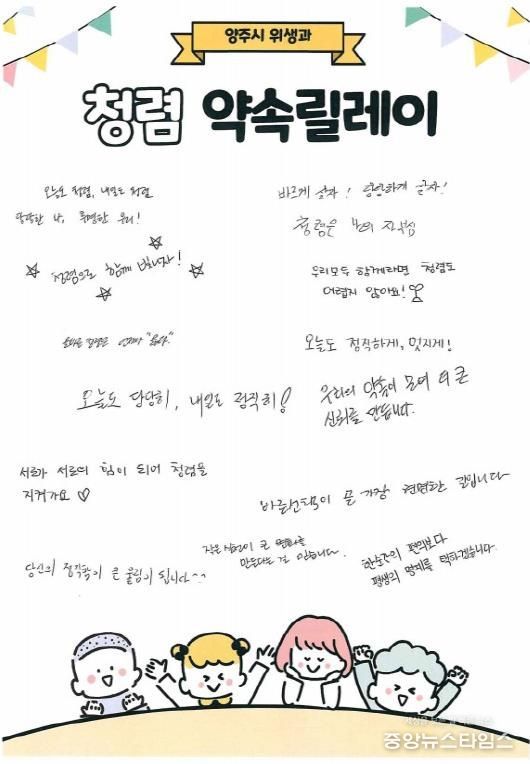 양주시 위생과
청렴 약속릴레이
오늘도 청렴, 내일도 청렴
당당한 나, 투명한 우리!
바르게 살자! 당당하게 살자!
청렴은 나의 자부심
청렴으로 함께 빛나자!
우리모두 함께라면 청렴도
어렵지 않아요!
"옳다."
오늘도 정직하게, 멋지게!
오늘도 당당히, 내일도 정직히!
우리의 약속이 모여 더 큰
신뢰를 만듭니다.
서로가 서로의 힘이 되어 청렴을
지켜가요 ♡
바른선택이 곧 가장 현명한 길입니다
작은 실천이 큰 변화를
만든다는 걸 믿습니다.
당신의 정직함이 큰 울림이 됩니다^^
한순간의 편의보다
평생의 명예를 택하겠습니다.
중앙뉴스타임스